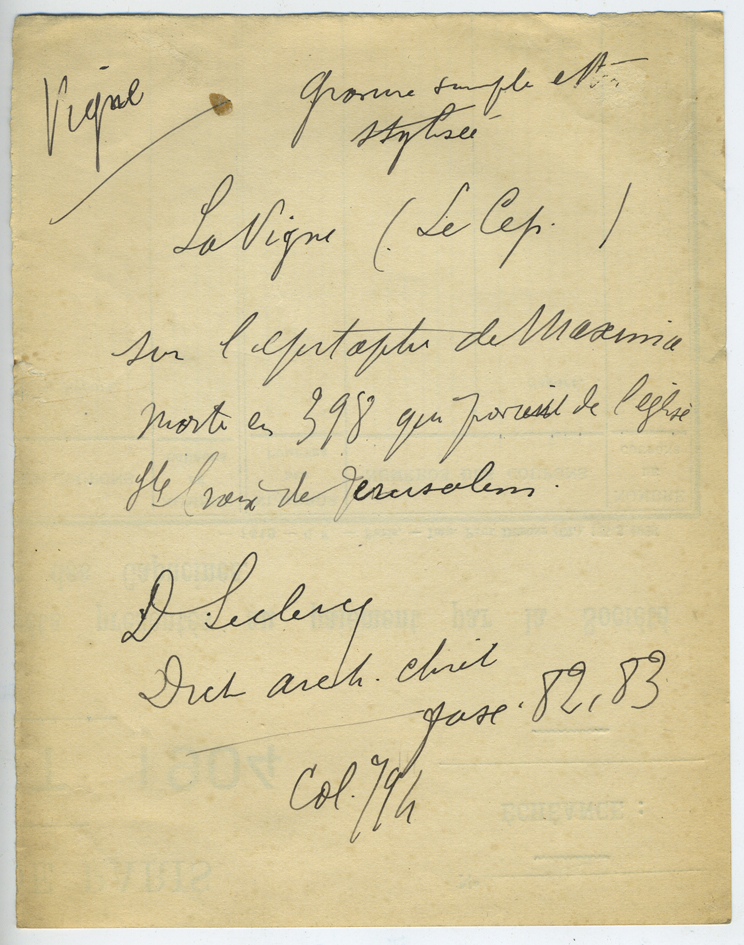 Vigne
gravure simple et
stylisée
La Vigne ( Le Cep. )
sur l'epitaphe de Maxima
morte en 398 qui provient de l'église
Ste Croix de Jerusalem.
D Leclercq
Dict arch. chret
fasc. 82, 83
Col. 794